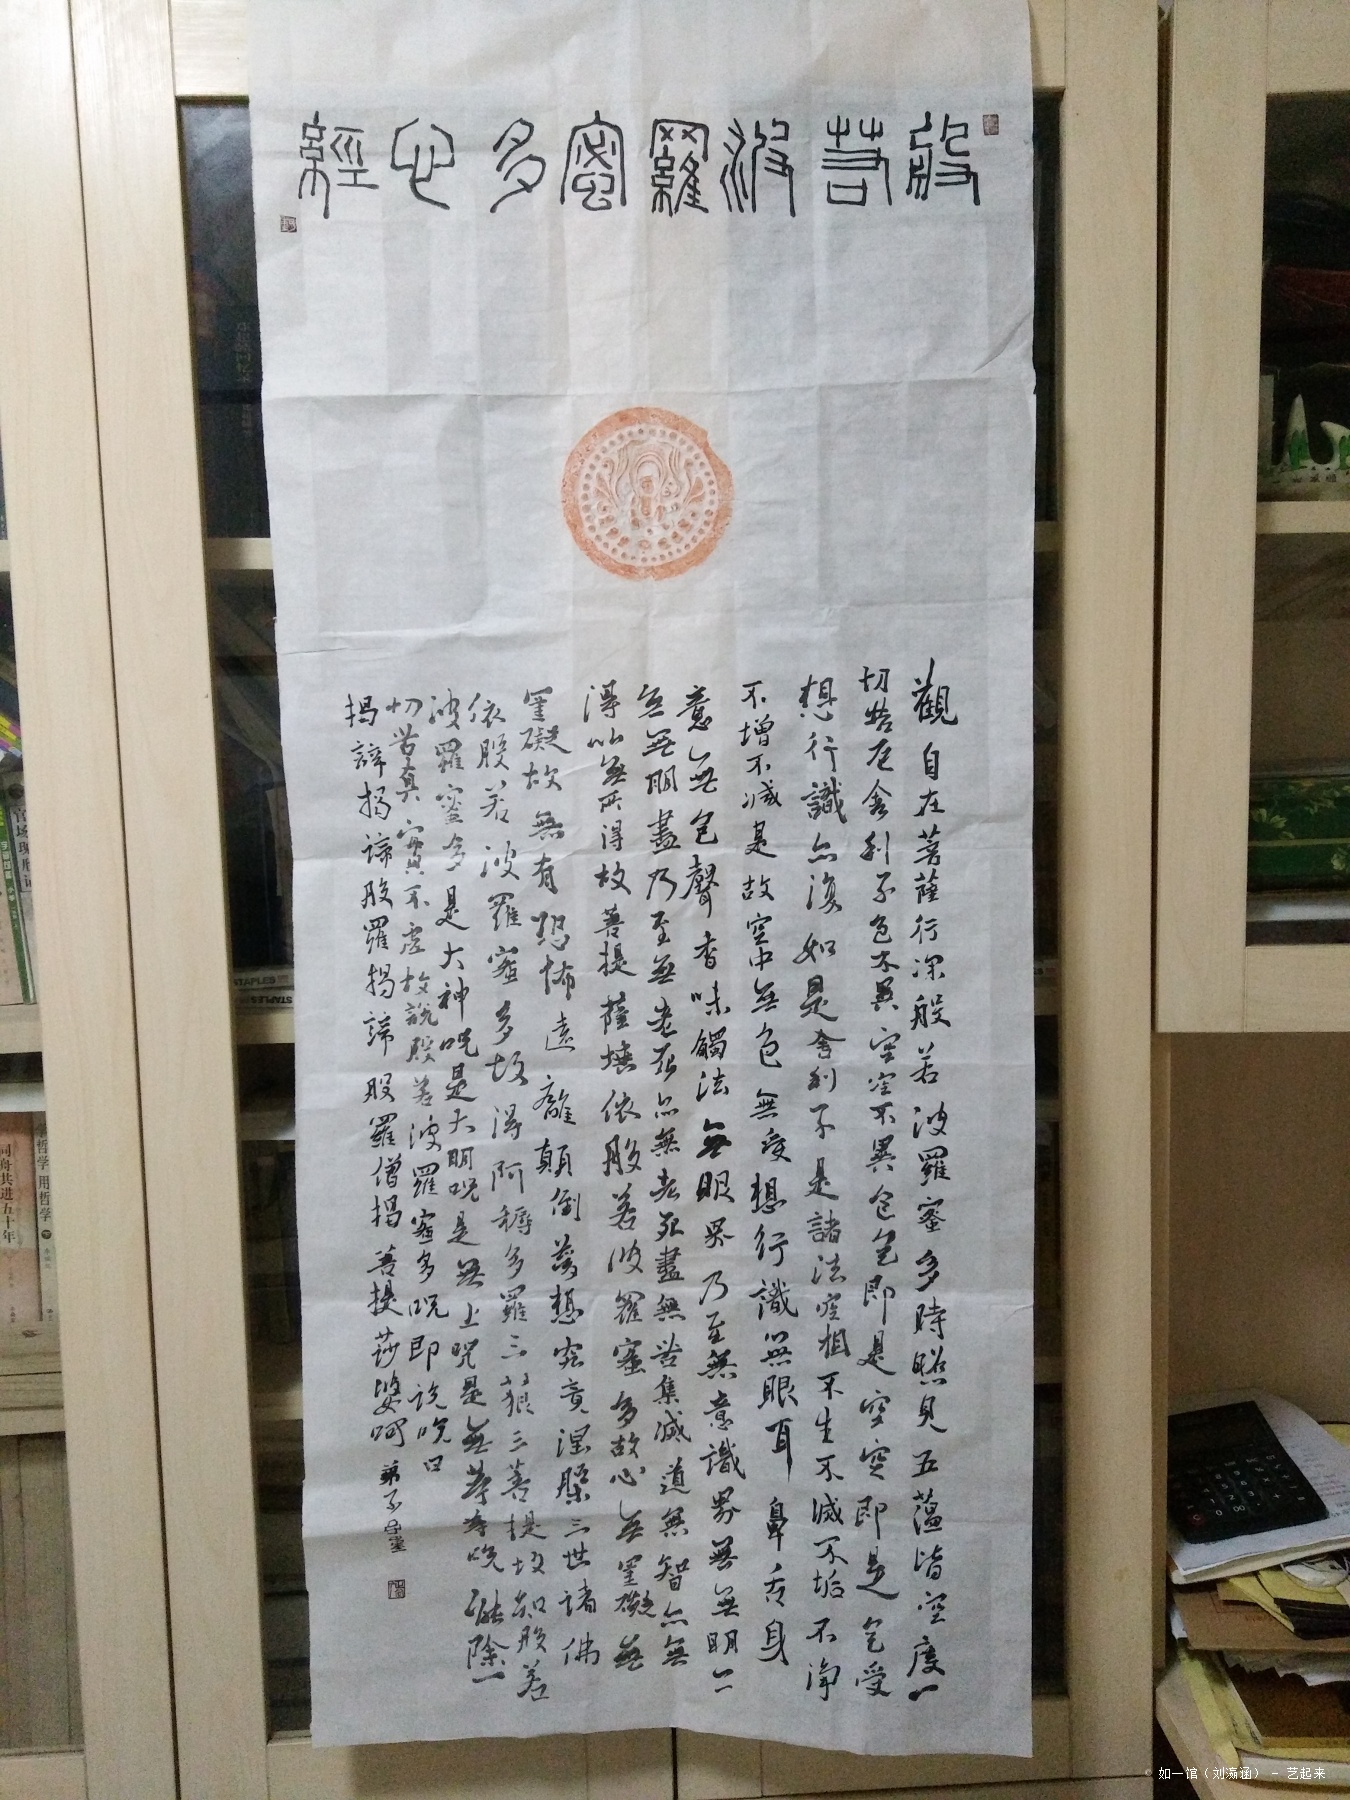 般若波羅蜜多心經
觀自在菩薩行深般若波羅蜜多時照見五蘊皆空度一
切苦厄舍利子色不異空空不異色色即是空空即是色受
想行識亦復如是舍利子是諸法空相不生不滅不垢不淨
不增不減是故空中無色無受想行識無眼耳鼻舌身
意無色聲香味觸法無眼界乃至無意識界無無明亦
無無明盡乃至無老死亦無老死盡無苦集滅道無智亦無
得以無所得故菩提薩埵依般若波羅蜜多故心無罣礙無
罣礙故無有恐怖遠離顛倒夢想究竟涅槃三世諸佛
依般若波羅蜜多故得阿耨多羅三藐三菩提故知般若
波羅蜜多是大神咒是大明咒是無上咒是無等等咒能除一
切苦真實不虛故說般若波羅蜜多咒即說咒曰
揭諦揭諦般羅揭諦般羅僧揭菩提莎婆呵 弟子
同舟共进五十年
哲学 用哲学
STAPLES
如一馆（刘瀛涵） - 艺起来